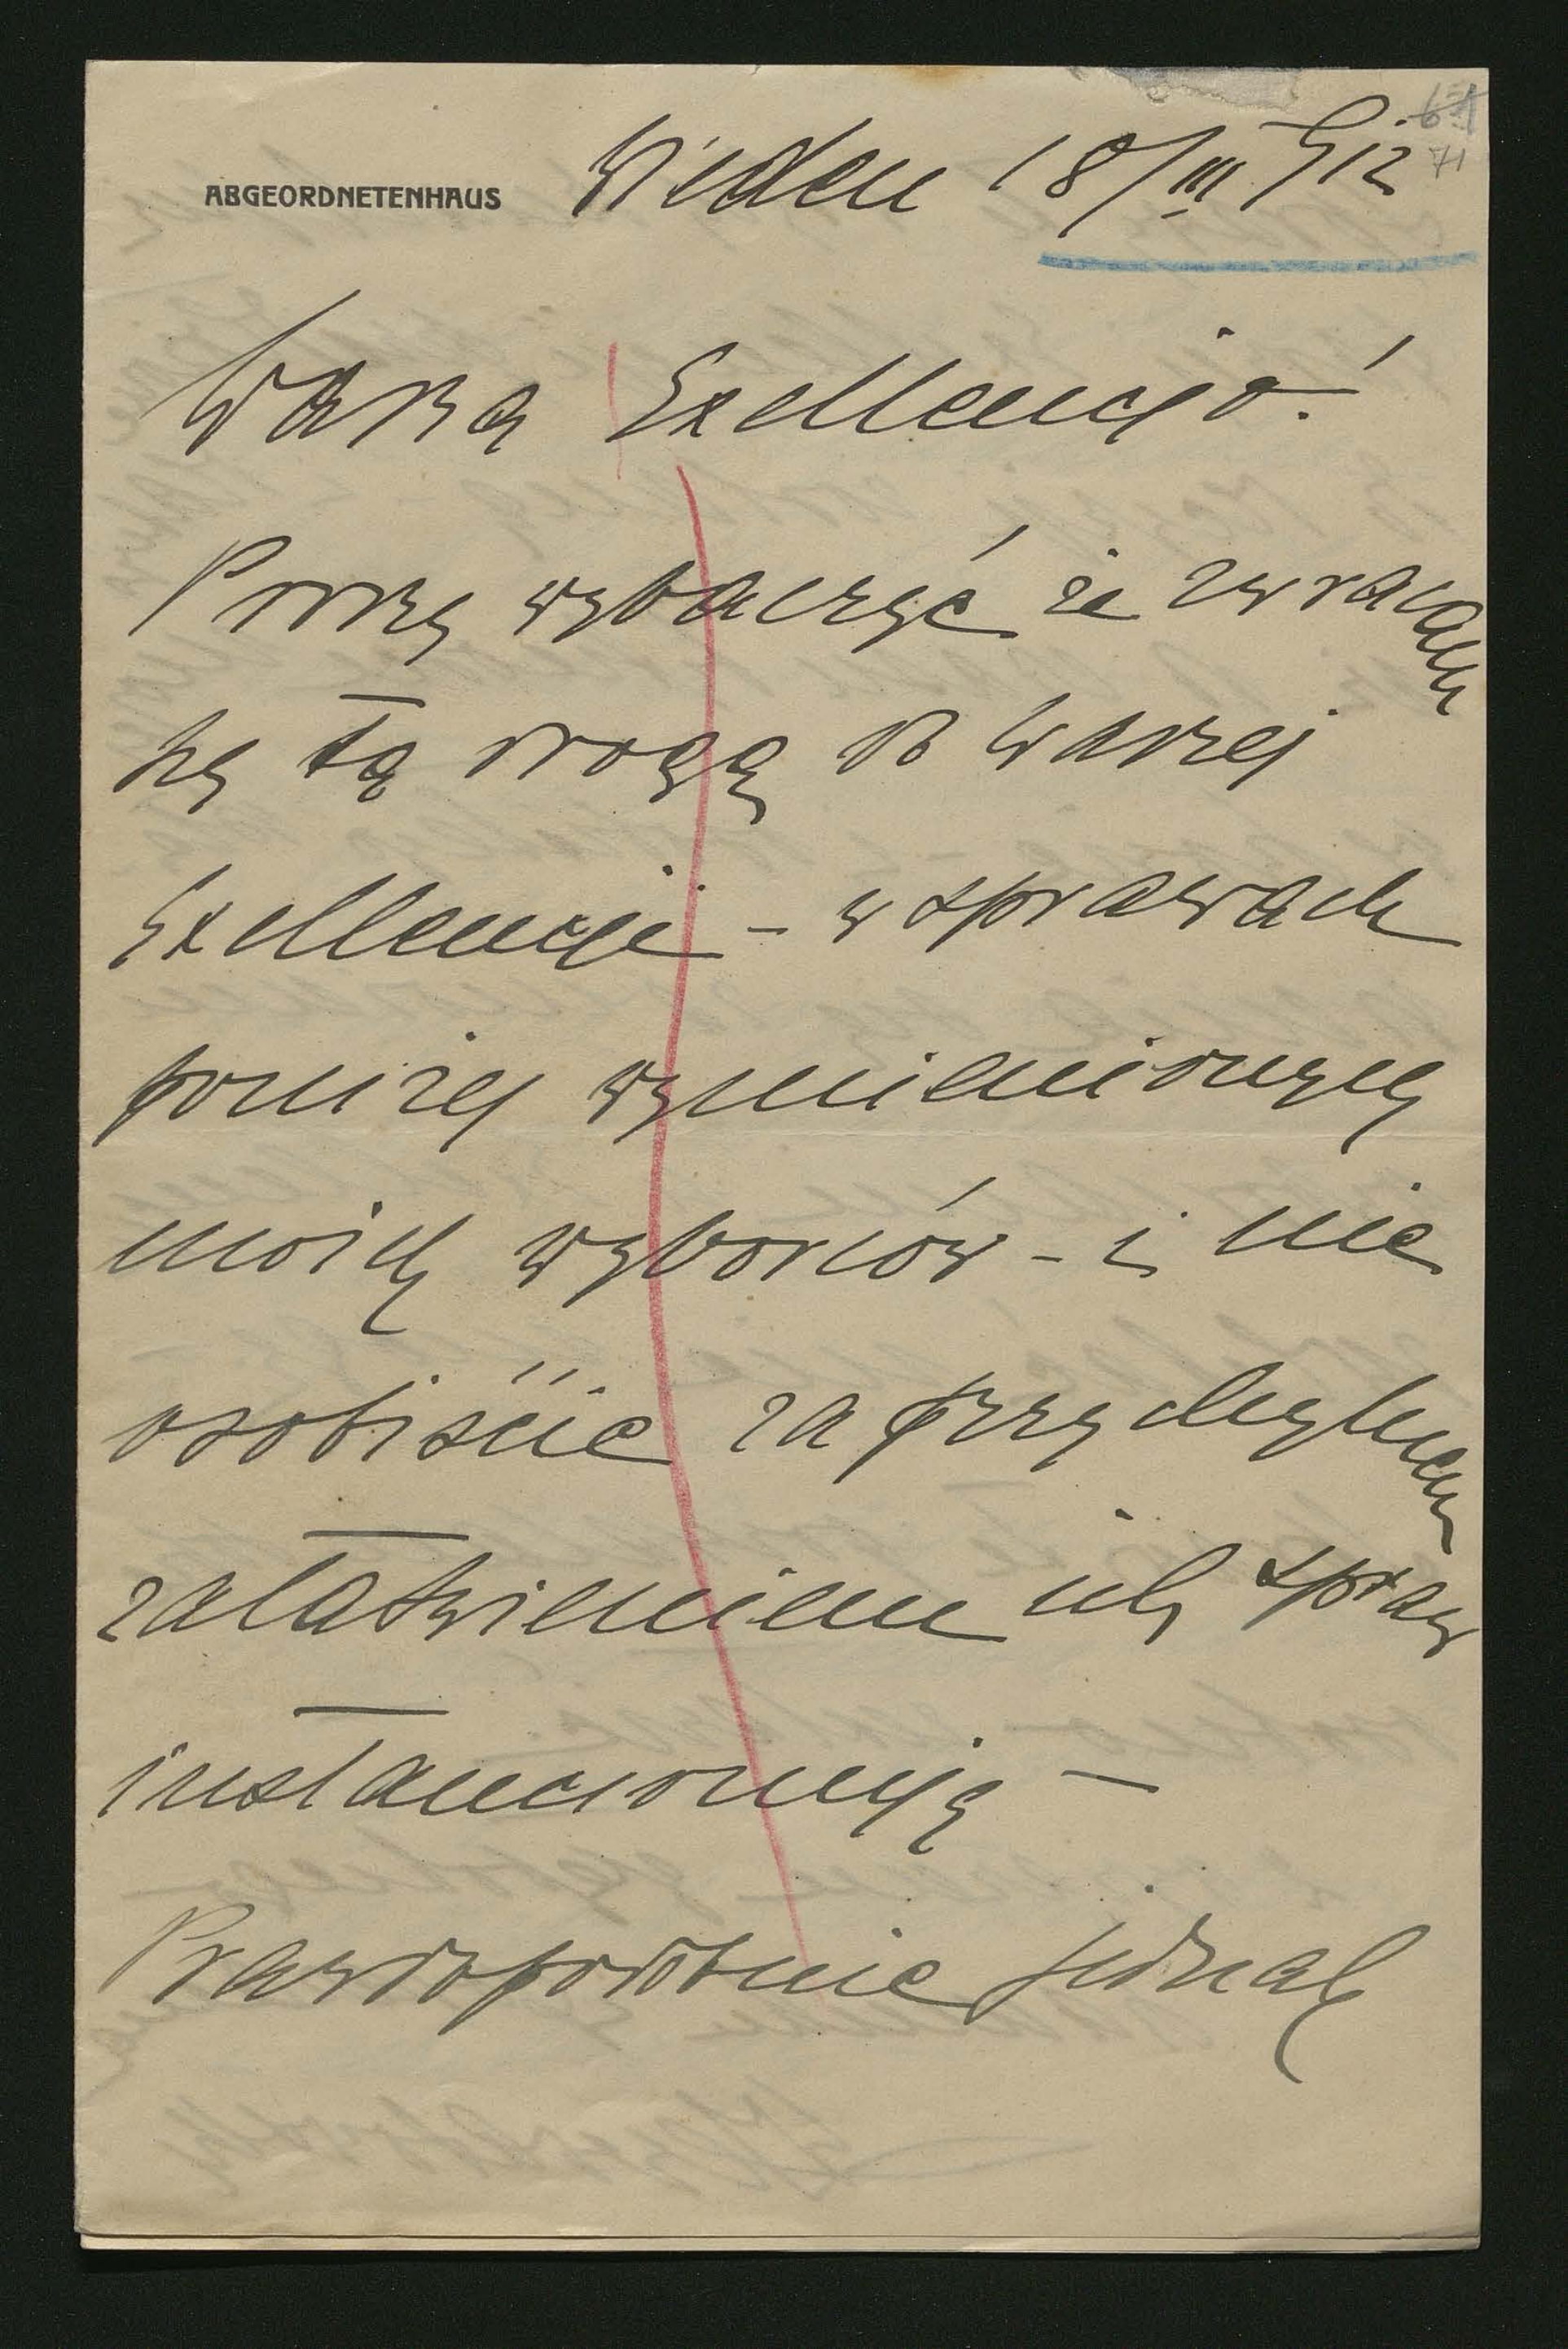 ABGEORDNETENHAUS Wieden 18/III 912
71
Wasza Exellencjo!
Proszę wybaczyć że zwracam
się tą drogą do Waszej
Exellencji - w sprawach
poniżej wymienionych
moich wyborców - i nie
osobiście za przychylnem
załatwieniem ich spraw
instancionuję -
Prawdopodobnie jednak